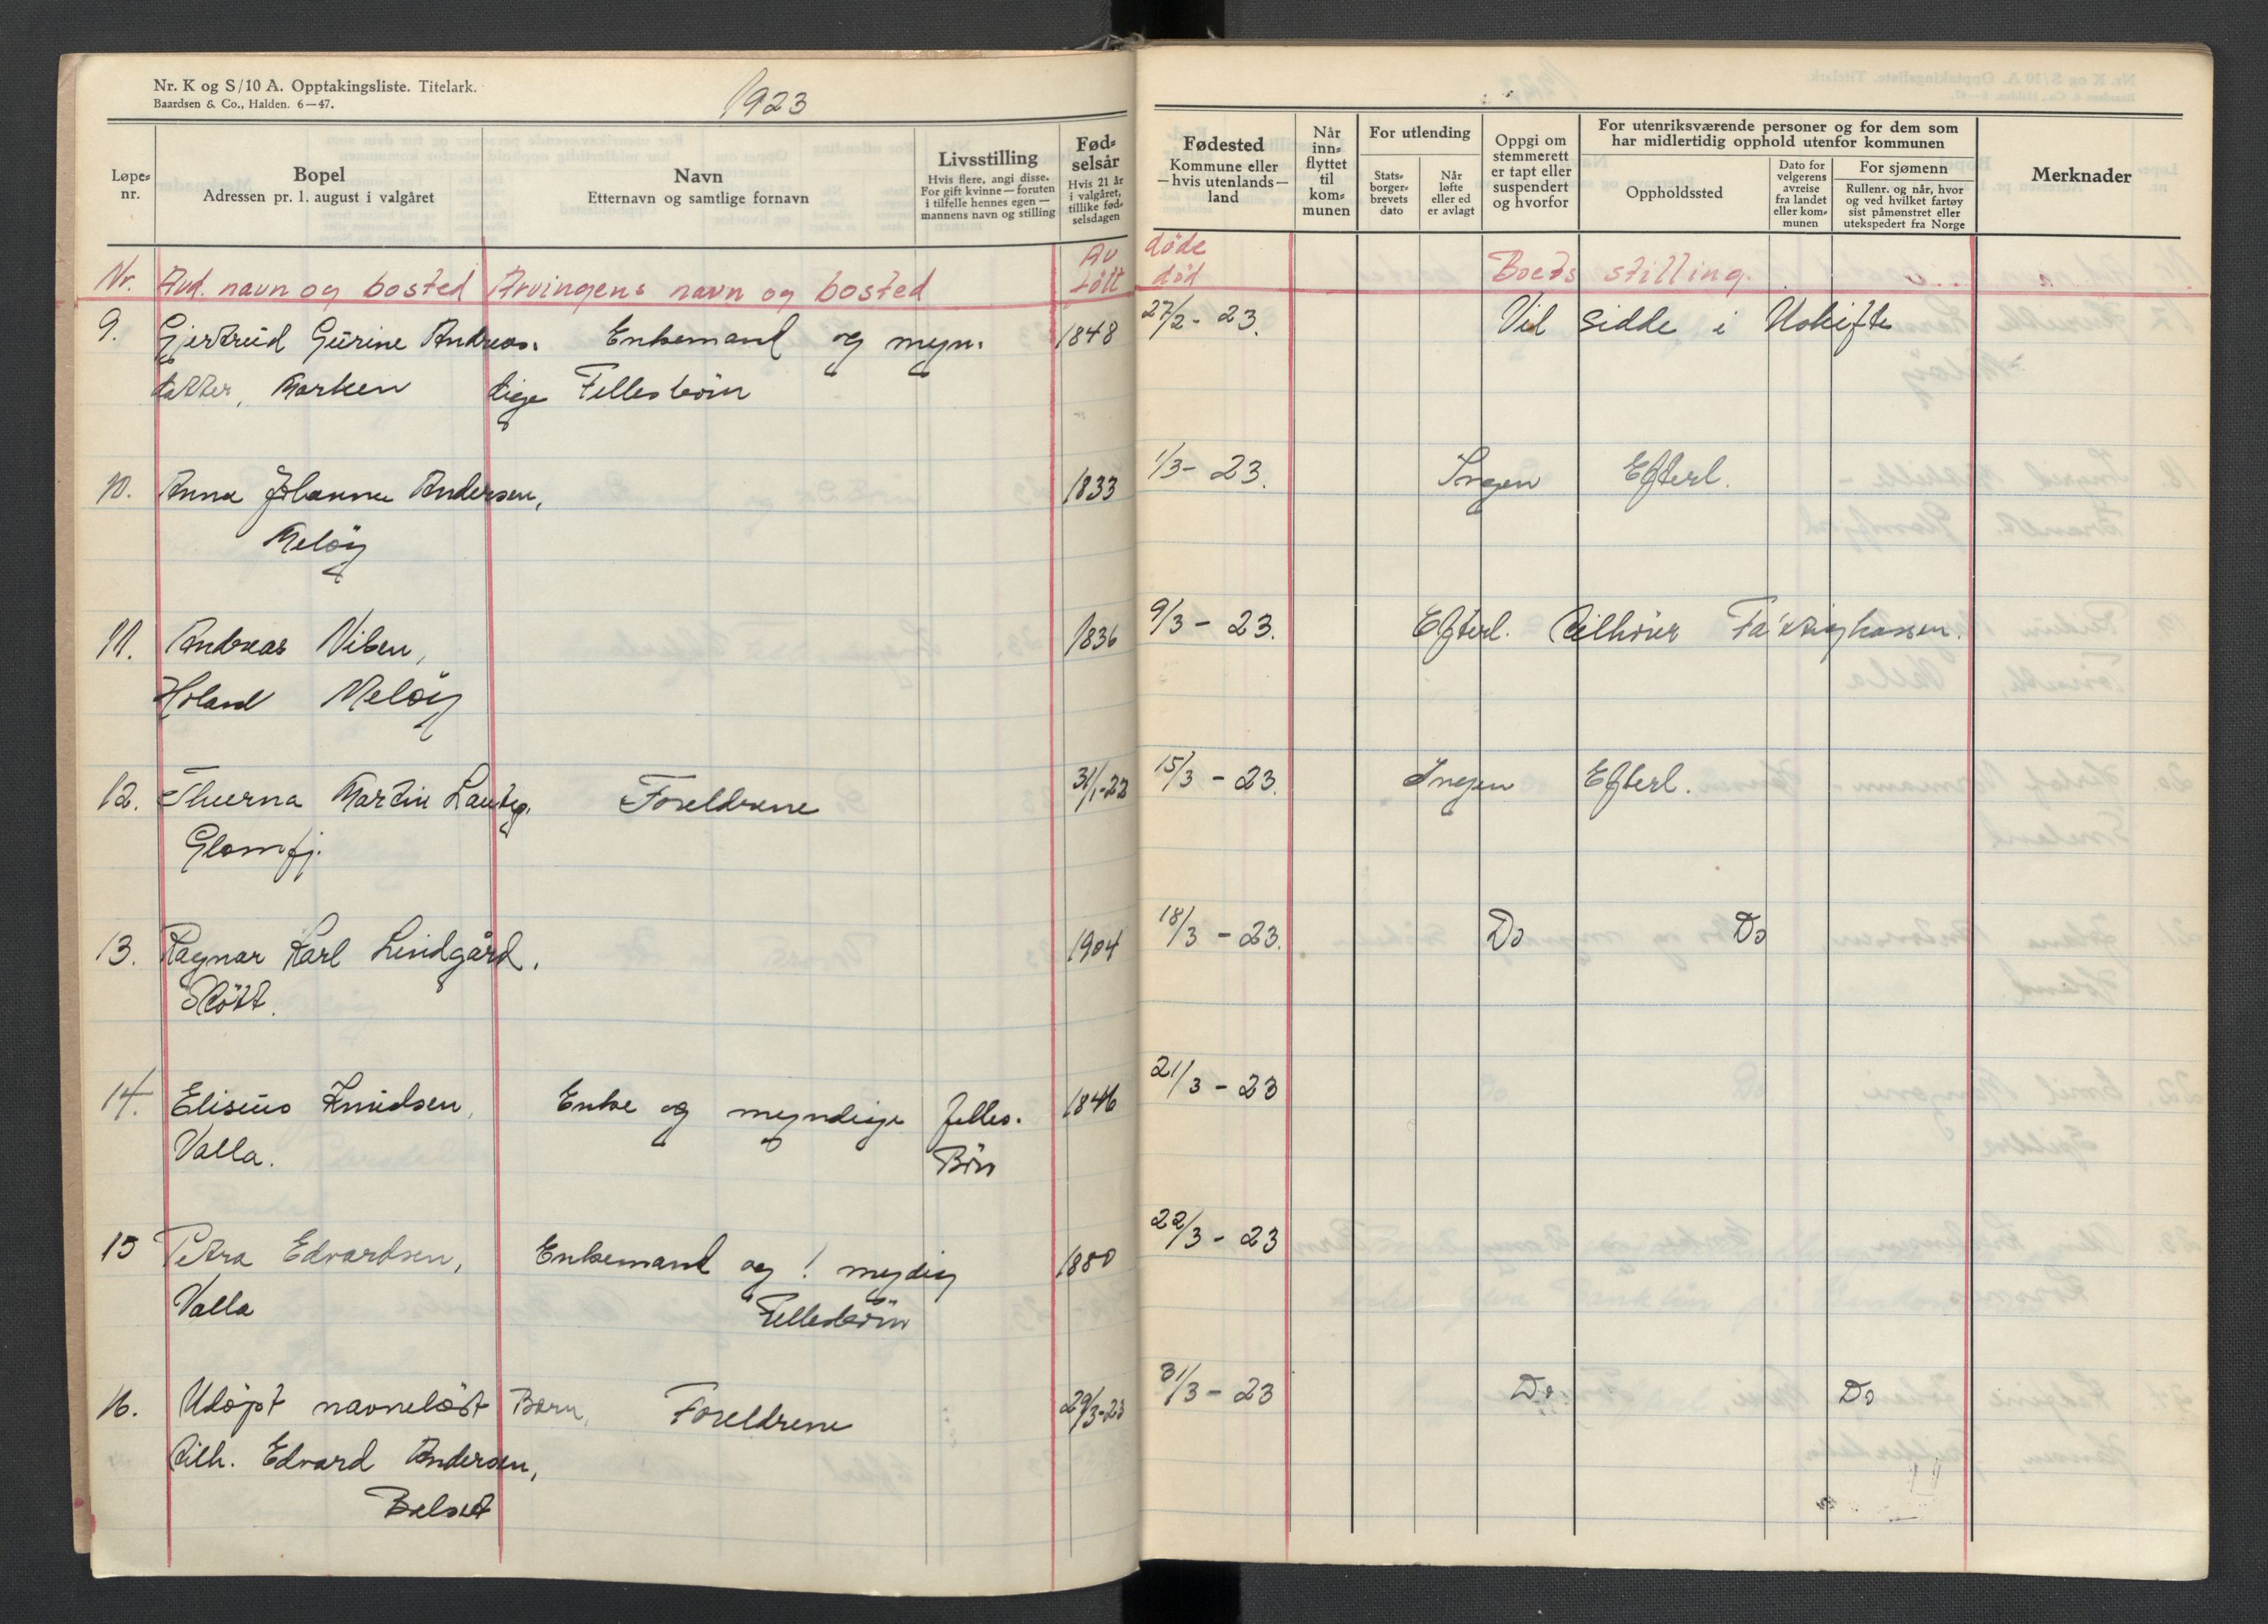 Nr. K og S/10 A. Opptakingsliste. Titelark.
Baardsen & Co., Halden. 6—47.
1923
Løpe-
nr.
Bopel
Adressen pr. 1. august i valgåret
Navn
Etternavn og samtlige fornavn
Livsstilling
Hvis flere, angi disse.
For gift kvinne — foruten
i tilfelle hennes egen —
mannens navn og stilling
Fød-
selsår
Hvis 21 år
i valgåret,
tillike fød-
selsdagen
Fødested
Kommune eller
— hvis utenlands —
land
Når
inn-
flyttet
til
kom-
munen
For utlending
Stats-
borger-
brevets
dato
Når
løfte
eller ed
er avlagt
Oppgi om
stemmerett
er tapt eller
suspendert
og hvorfor
For utenriksværende personer og for dem som
har midlertidig opphold utenfor kommunen
Oppholdssted
Dato for
velgerens
avreise
fra landet
eller kom-
munen
For sjømenn
Rullenr. og når, hvor
og ved hvilket fartøy
sist påmønstret eller
utekspedert fra Norge
Merknader
Av døde
Nr. Avd. navn og bosted Arvingens navn og bosted født död Boets stilling.
9. Gjertrud Gurine Andreas- Enkemand og myn- 1848 27/2 - 23. Vil sidde i Uskifte
datter, Marken dige Fellesbörn
10. Anna Johanna Andersen, 1833 1/3 - 23. Ingen Efterl.
Melöy
11. Andreas Nilsen, 1836 9/3 - 23. Efterl. tilhörer Fattigkassen.
Holand Melöy
12. Martin Foreldrene 31/1-22 15/3 - 23. Ingen Efterl.
Glomfj.
13. Ragnar Karl Lindgård. 1904 18/3 - 23. Do Do
Stött.
14. Eliseus Knudsen, Enke og myndige felles- 1846 21/3 - 23
Valla. Börn
15 Petra Edvardsen, Enkemand og 1 mydig 1880 22/3 - 23
Valla Fellesbörn
16. Udöpt navnelöst Barn, Foreldrene 29/3-23 31/3 - 23 Do. Do
tilh. Edvard Andersen,
Belset